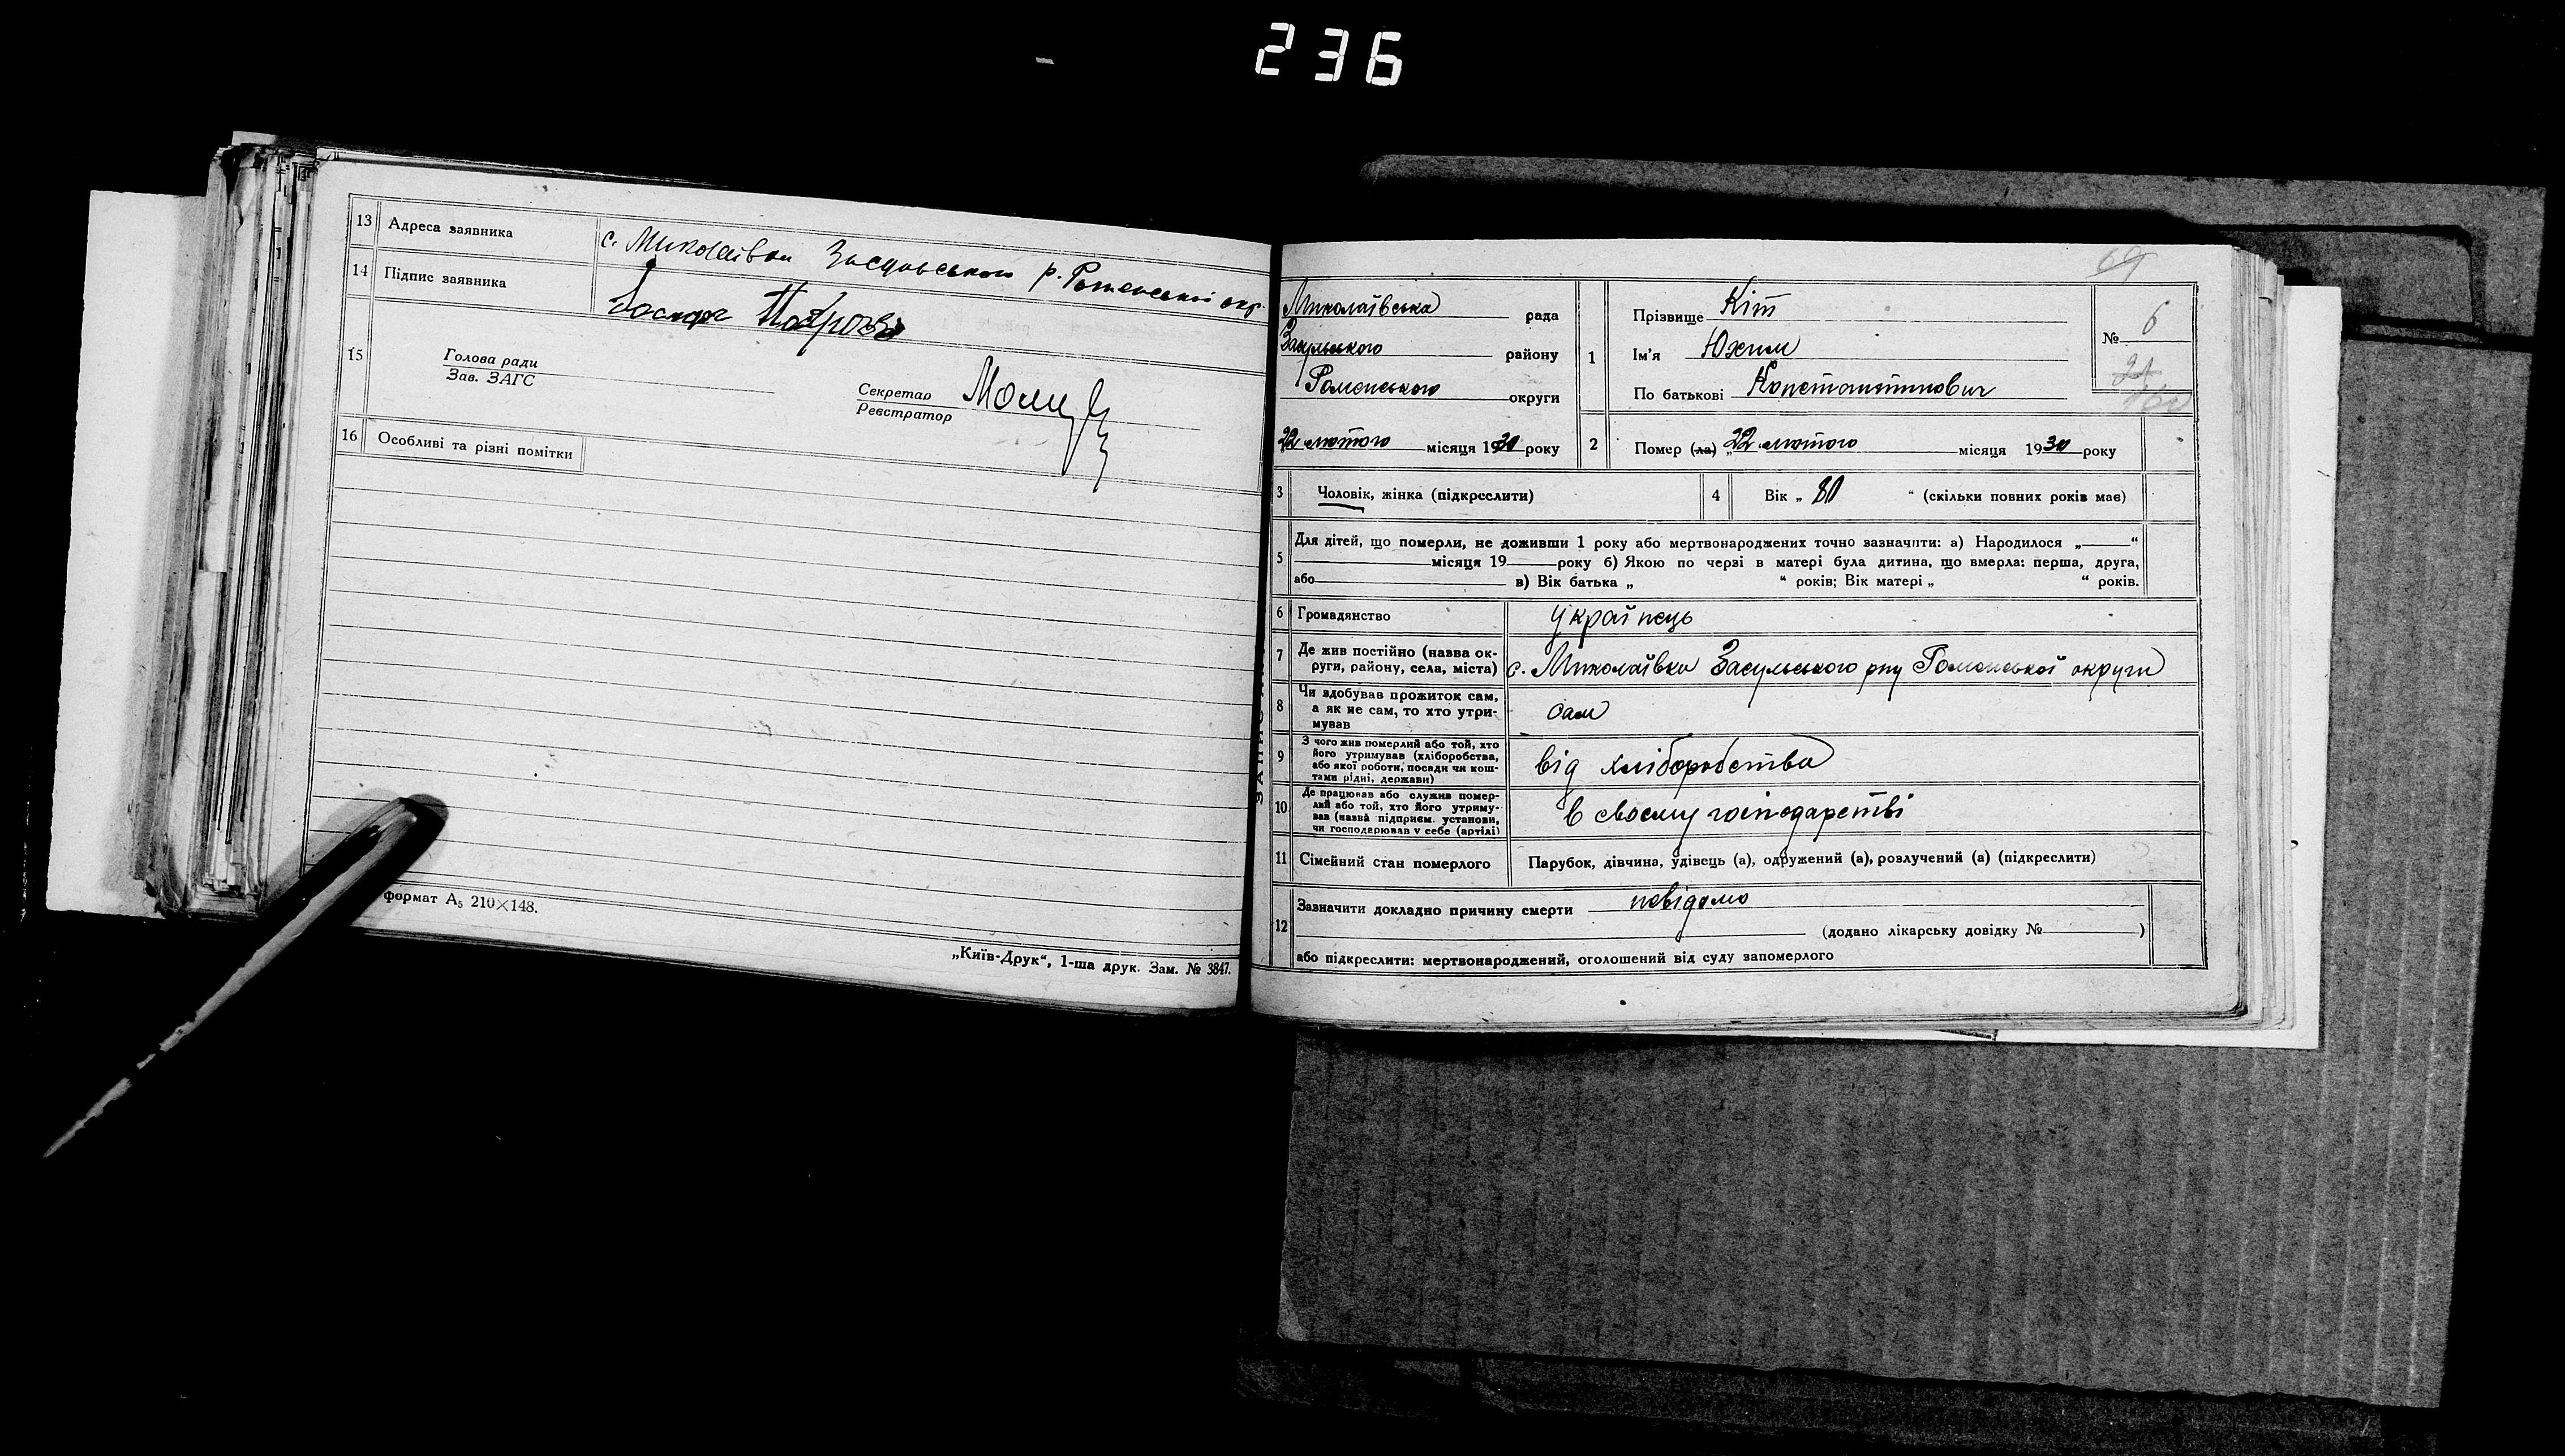 236
13 Адреса заявника с. Миколаївки Засульського р. Роменської окр.
14 Підпис заявника
15 Голова ради
Зав. ЗАГС
Секретар
Реєстратор
16 Особливі та різні помітки
формат А5 210×148.
„Київ-Друк“, 1-ша друк. Зам. № 3847.
69
Миколаївська рада
Засульського району
Роменського округи
22 лютого місяця 1930 року
1 Прізвище Кіт
Ім'я Юхим
По батькові Константинович
№ 6
21
2 Помер (ла) „22 лютого місяця 1930 року
3 Чоловік, жінка (підкреслити)
4 Вік „ 80 “ (скільки повних років має)
5 Для дітей, що померли, не доживши 1 року або мертвонароджених точно зазначити: а) Народилося „ “
місяця 19 року б) Якою по черзі в матері була дитина, що вмерла: перша, друга,
або в) Вік батька „ “ років; Вік матері „ “ років.
6 Громадянство Українець
7 Де жив постійно (назва ок-
руги, району, села, міста) с. Миколаївки Засульського рну Роменської округи
8 Чи здобував прожиток сам,
а як не сам, то хто утри-
мував
сам
9 З чого жив померлий або той, хто
його утримував (хліборобства,
або якої роботи, посади чи кош-
тами рідні, держави)
від хліборобства
10 Де працював або служив помер-
лий або той, хто його утриму-
вав (назва підприєм. установи,
чи господарював у себе (артілі)
в своєму господарстві
11 Сімейний стан померлого Парубок, дівчина, удівець (а), одружений (а), розлучений (а) (підкреслити)
12 Зазначити докладно причину смерти невідомо
(додано лікарську довідку № )
або підкреслити: мертвонароджений, оголошений від суду запомерлого